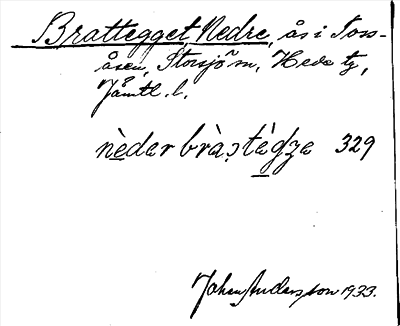 Brattegget, Nedre, ås i Toss-
åsen, Storsjö sn, Hede tg,
Jämtl. l.
nèdar bràstègza 329
Johan Andersson 1933.